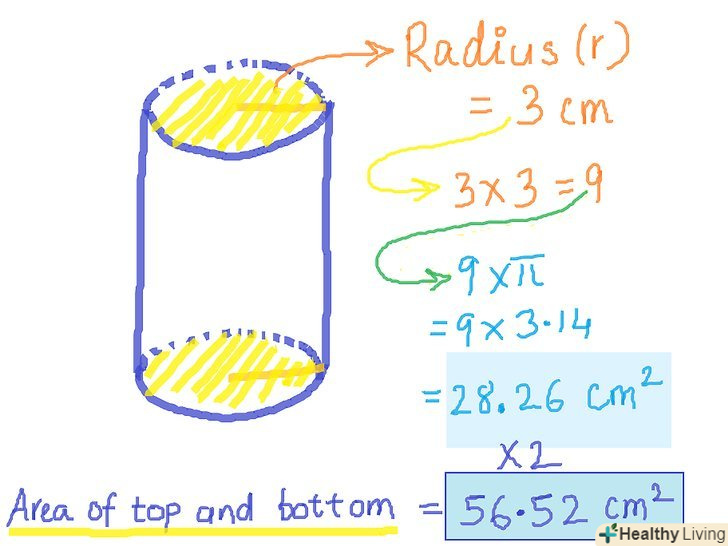 Radius (r)
= 3 cm
3 x 3 = 9
9 x π
= 9 x 3·14
= 28.26 cm²
x 2
Area of top and bottom = 56·52 cm²
Healthy Living